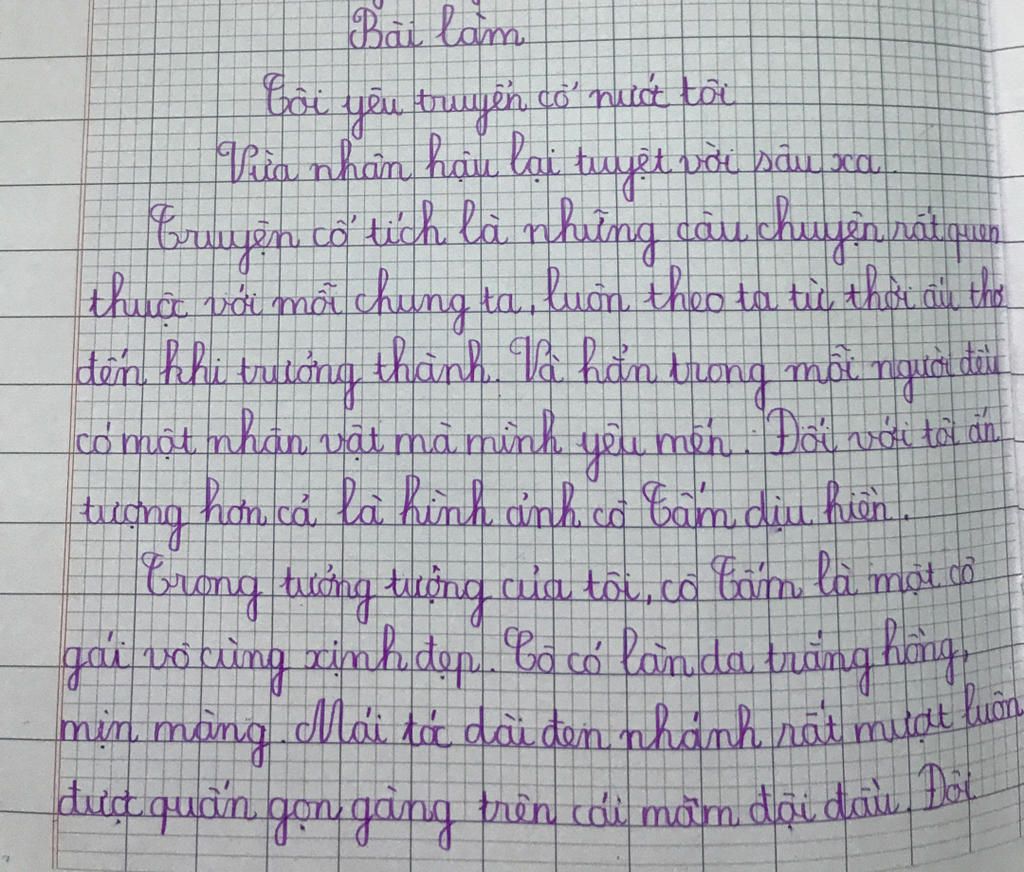 Bài làm
Tôi yêu truyện cổ nước tôi
Vừa nhân hậu lại tuyệt vời sâu xa.
Truyện cổ tích là những câu chuyện rất quen
thuộc với mỗi chúng ta, luôn theo ta từ thời ấu thơ
đến khi trưởng thành. Và hẳn trong mỗi người đều
có một nhân vật mà mình yêu mến. Đối với tôi ấn
tượng hơn cả là hình ảnh cô Tấm dịu hiền.
Trong tưởng tượng của tôi, cô Tấm là một cô
gái vô cùng xinh đẹp. Cô có làn da trắng hồng,
mịn màng. Mái tóc dài đen nhánh rất mượt luôn
được quấn gọn gàng trên cái mâm đội đầu. Đôi